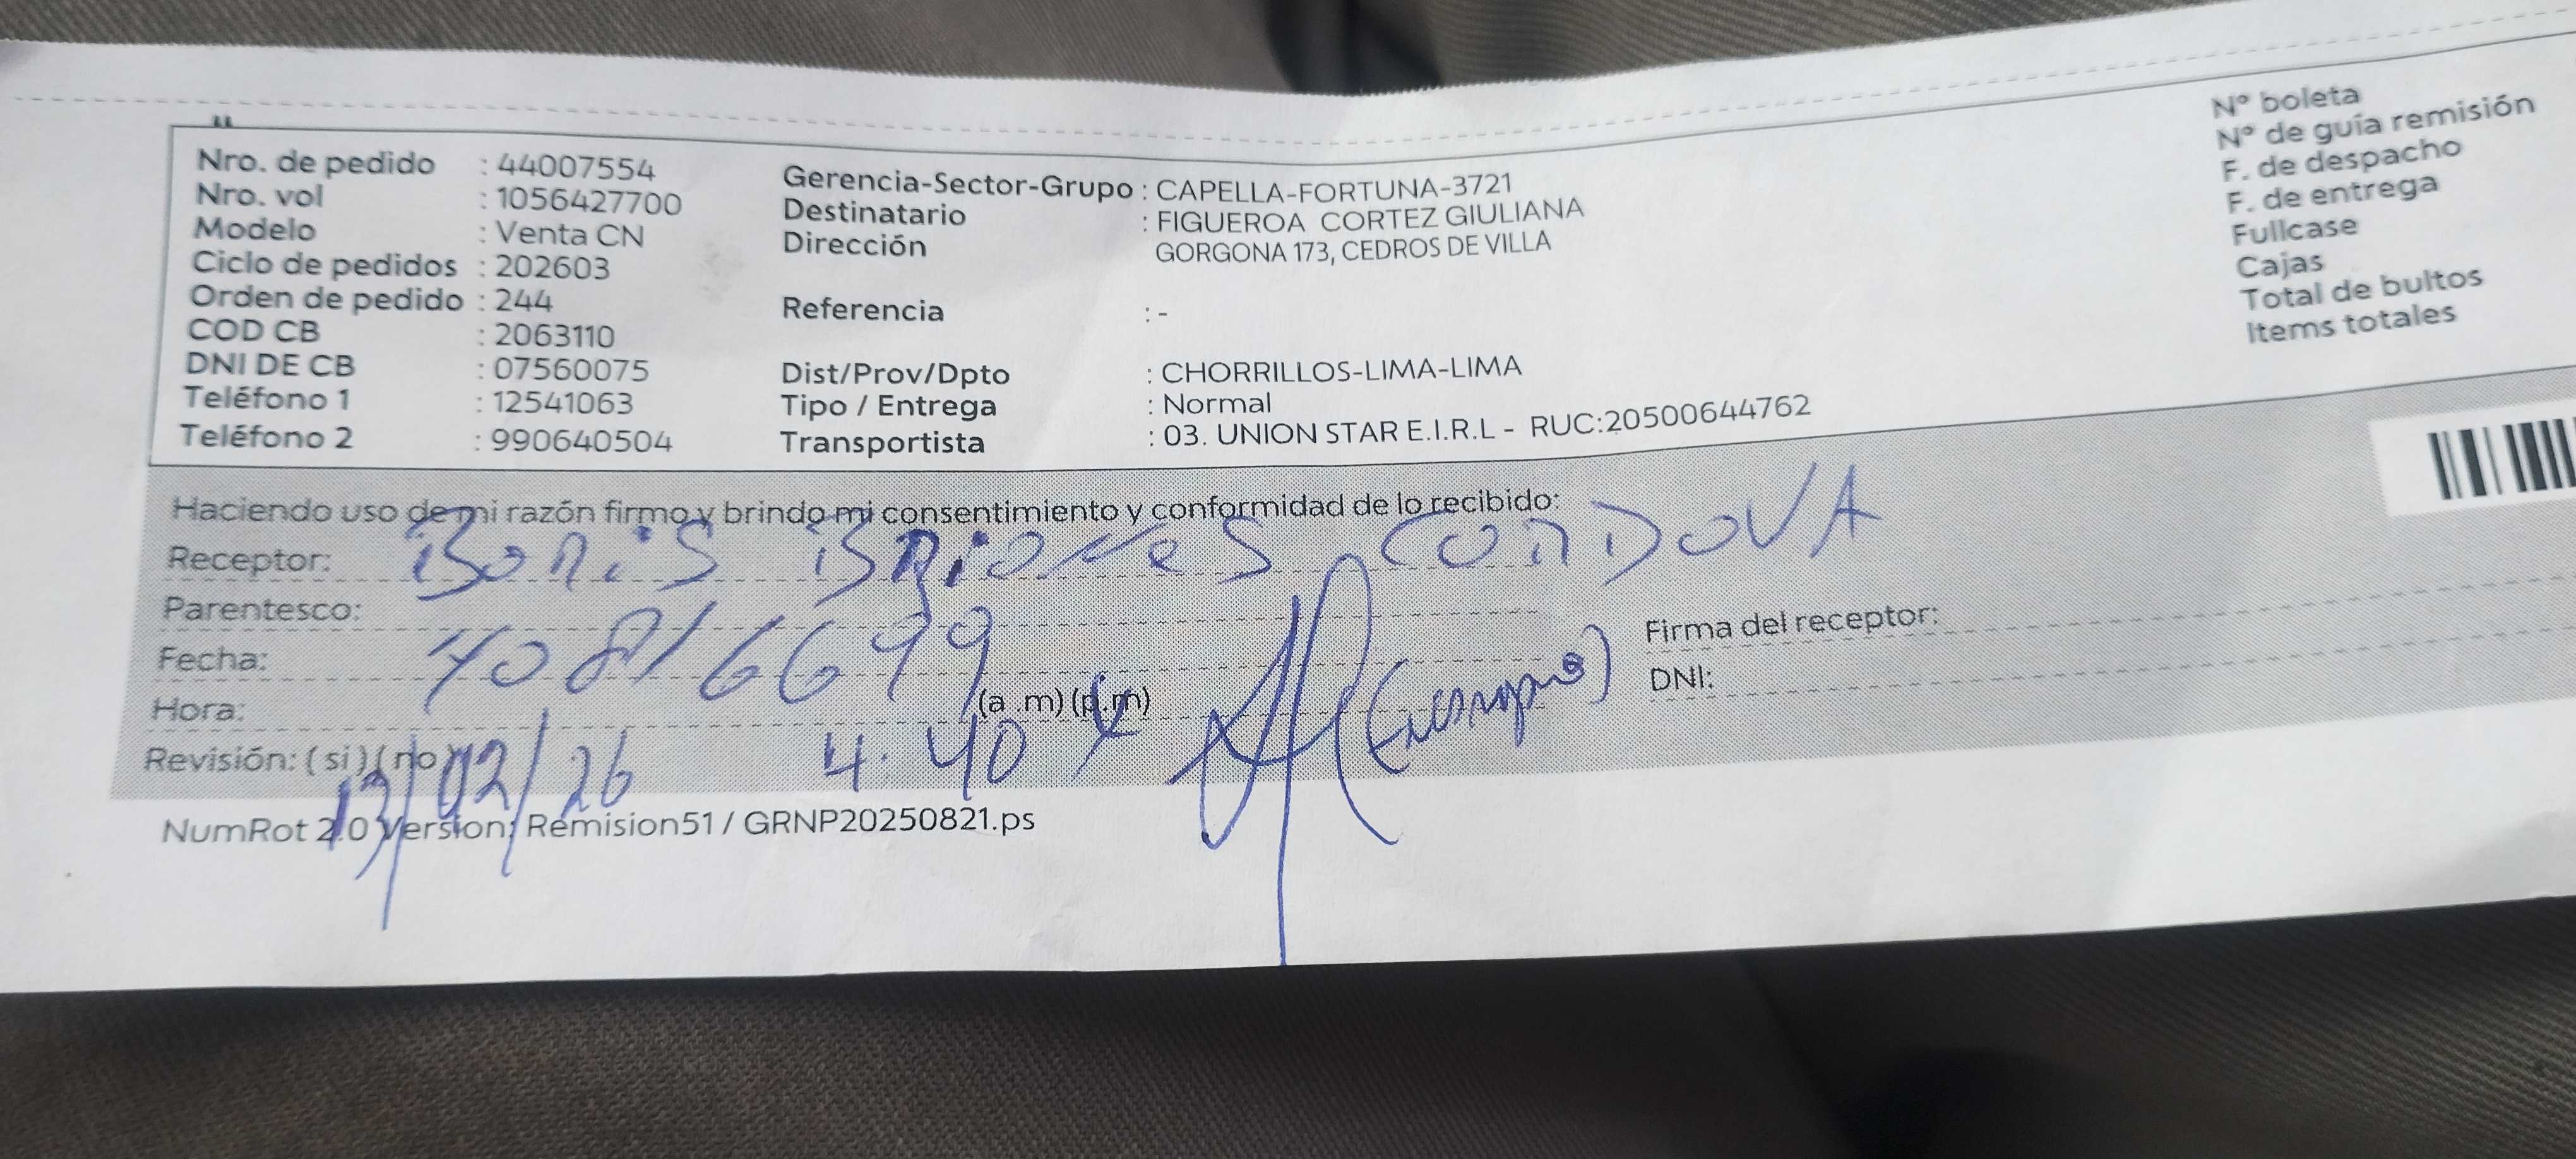 Nro. de pedido : 44007554
Nro. vol : 1056427700
Modelo : Venta CN
Ciclo de pedidos : 202603
Orden de pedido : 244
COD CB : 2063110
DNI DE CB : 07560075
Teléfono 1 : 12541063
Teléfono 2 : 990640504
Gerencia-Sector-Grupo : CAPELLA-FORTUNA-3721
Destinatario : FIGUEROA CORTEZ GIULIANA
Dirección GORGONA 173, CEDROS DE VILLA
Referencia : -
Dist/Prov/Dpto : CHORRILLOS-LIMA-LIMA
Tipo / Entrega : Normal
Transportista : 03. UNION STAR E.I.R.L - RUC:20500644762
Nº boleta
Nº de guía remisión
F. de despacho
F. de entrega
Fullcase
Cajas
Total de bultos
Items totales
Haciendo uso de mi razón firmo y brindo mi consentimiento y conformidad de lo recibido:
Receptor: Boris Briones CORDOVA
Parentesco:
Fecha: 40816699
Hora: (a .m) (p.m)
Firma del receptor:
DNI:
Revisión: ( si ) ( no )
13/02/26 4:40
NumRot 2.0 Version: Remision51 / GRNP20250821.ps